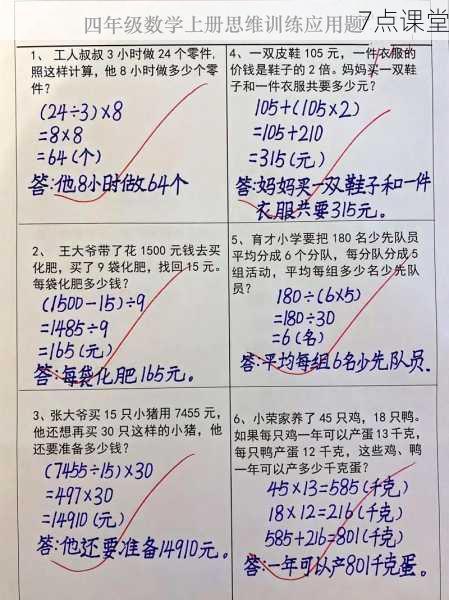 四年级数学上册思维训练应用题
7点课堂
1、 工人叔叔 3 小时做 24 个零件,
照这样计算，他 8 小时做多少个零
件?
(24÷3)×8
=8×8
=64(个)
答:他8小时做64个
4、一双皮鞋 105 元，一件衣服的
价钱是鞋子的 2 倍。妈妈买一双鞋
子和一件衣服共要多少元?
105+(105×2)
=105+210
=315(元)
答:妈妈买一双鞋子和一件
衣服共要315元。
2、 王大爷带了花 1500 元钱去买
化肥，买了 9 袋化肥，找回 15 元。
每袋化肥多少钱?
(1500-15)÷9
=1485÷9
=165(元)
答:每袋化肥165元。
5、育才小学要把 180 名少先队员
平均分成 6 个分队，每分队分成 5
组活动，平均每组多少名少先队
员?
180÷(6×5)
=180÷30
=6(名)
答:平均每组6名少先队员.
3、张大爷买 15 只小猪用 7455 元，
他还想再买 30 只这样的小猪，他
还要准备多少钱?
(7455÷15)×30
=497×30
=14910(元)
答:他还要准备14910元。
6、小荣家养了 45 只鸡，18 只鸭。
如果每只鸡一年可以产蛋 13 千克，
每只鸭产蛋 12 千克，这些鸡、鸭
一年可以产多少千克蛋?
45×13=585(千克)
18×12=216(千克)
585+216=801(千克)
答:一年可以产801千克蛋。